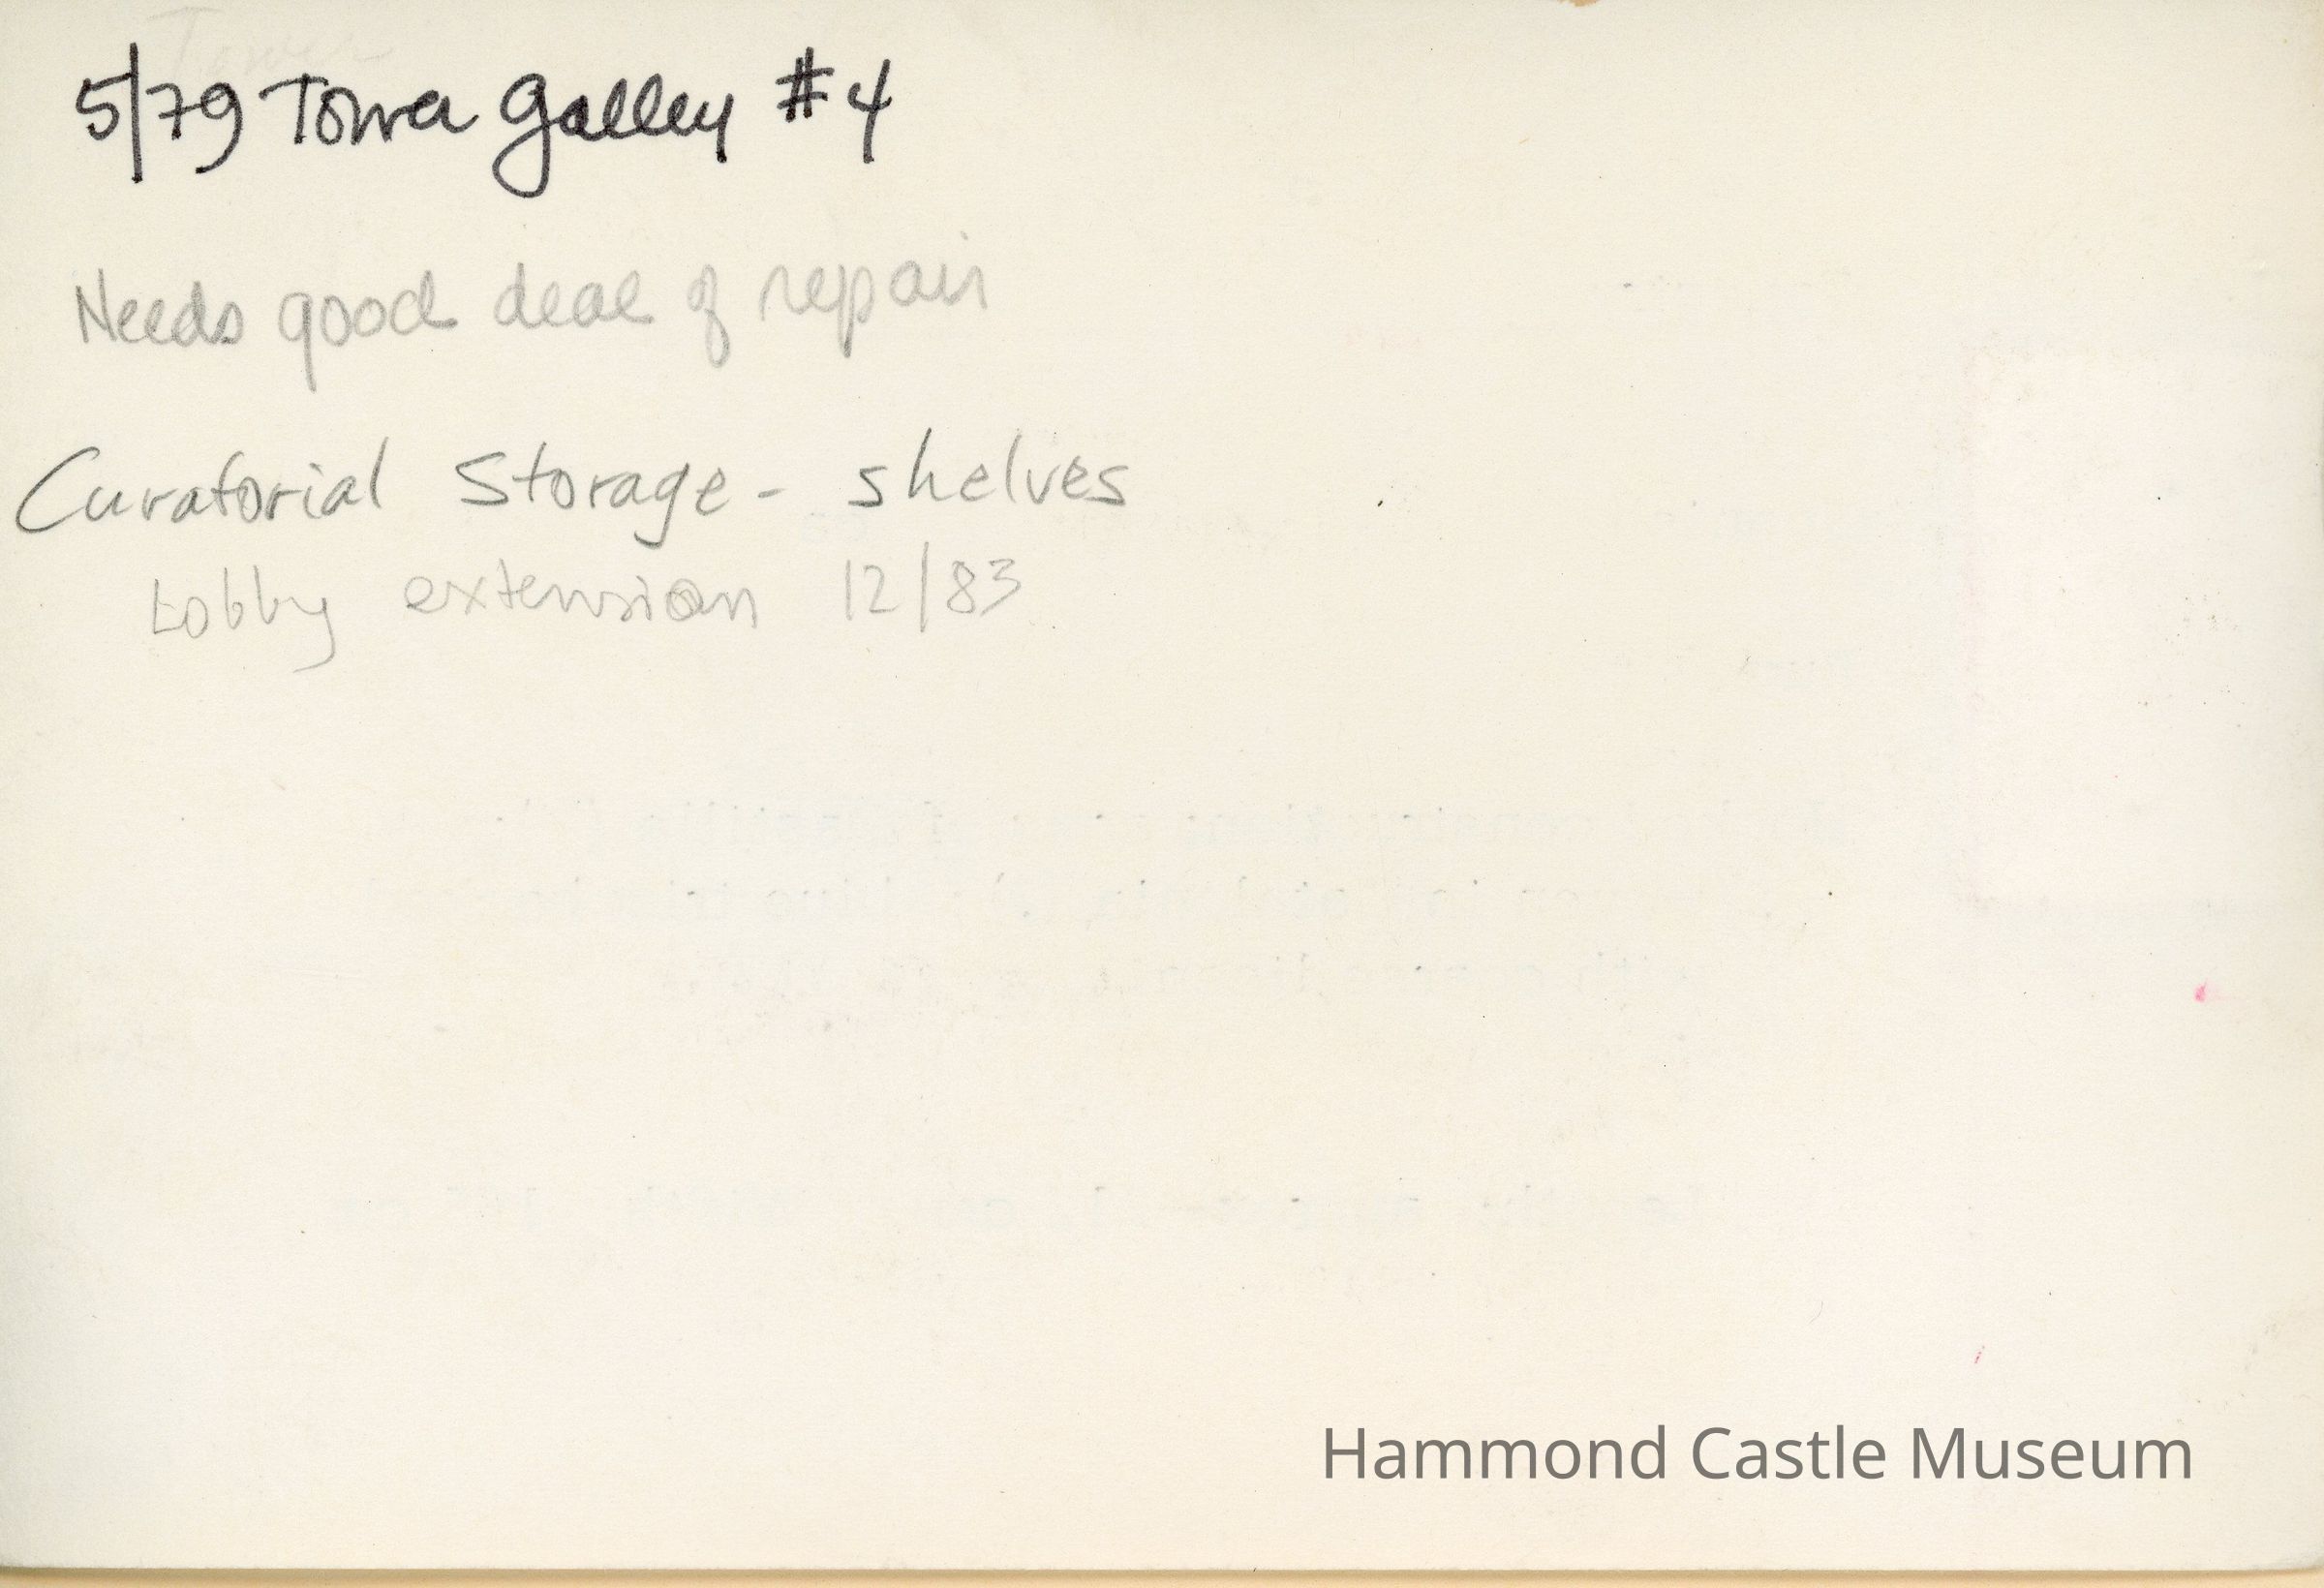 Tower
5/79 Tower Gallery #4
Needs good deal of repair
Curatorial Storage - shelves
Lobby extension 12/83
Hammond Castle Museum